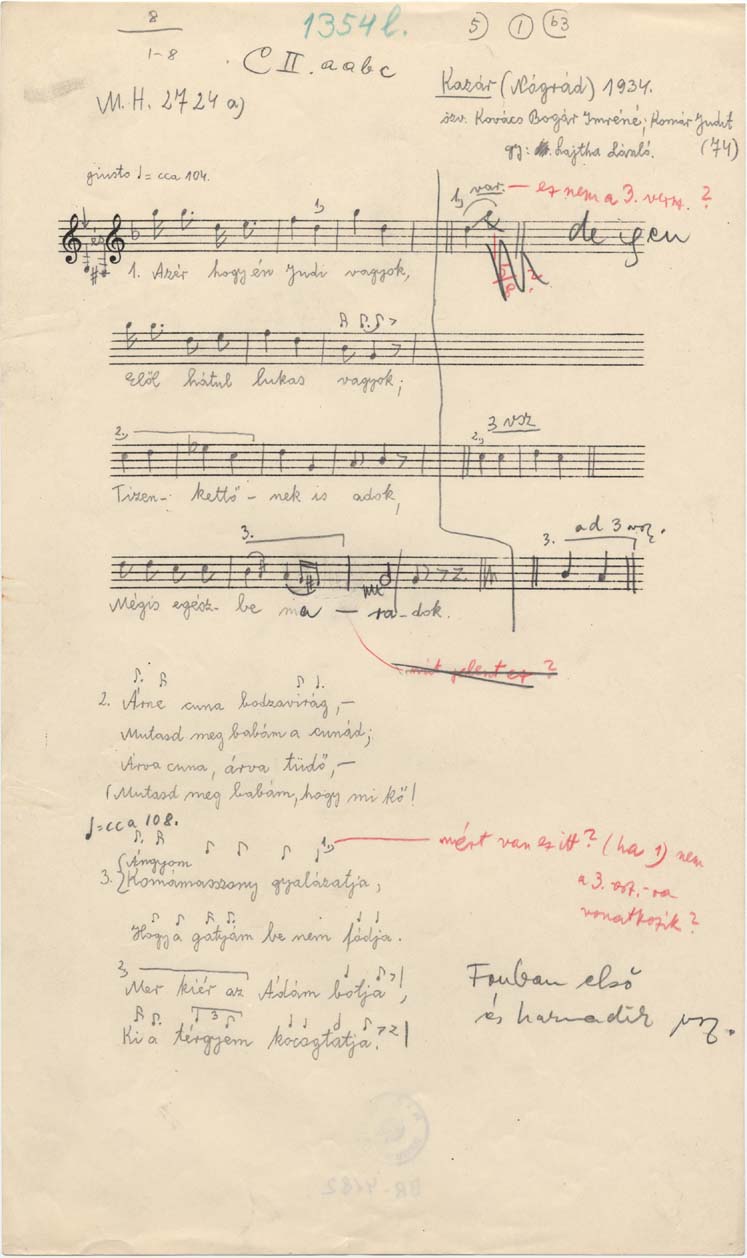 8
1-8
1354 l.
5) 1 b3
C II. a a b c
M. H. 2724 a)
Kazár (Nógrád) 1934.
özv. Kovács Bogár Imréné; Komár Judit
(74)
gy: Lajtha László.
giusto ♩= cca 104.
1) var. — ez nem a 3. versz. ?
és
1)
de igen
1. Azér hogy én Judi vagyok,
Elől hátul lukas vagyok;
2.,
2., 3 vsz
Tizen- kettő - nek is adok,
3.
3. ad 3 vsz.
Mégis egész- be ma — ra-dok.
mit jelent ez ?
2. Árne cuna bodzavirág, —
Mutasd meg babám a cunád;
Árva cuna, árva tüdő, —
(Mutasd meg babám, hogy mi kő!
♩=cca 108.
1)
mért van ez itt? (ha 1) nem
a 3. vsz.-ra
vonatkozik?
Ángyom
3. Komámasszony gyalázatja,
Hogy a gatyám be nem fódja.
2,
Mer kiér az Ádám botja,
3
Ki a térgyem kocogtatja.
Fonban első
és harmadik vsz.
BR-4182